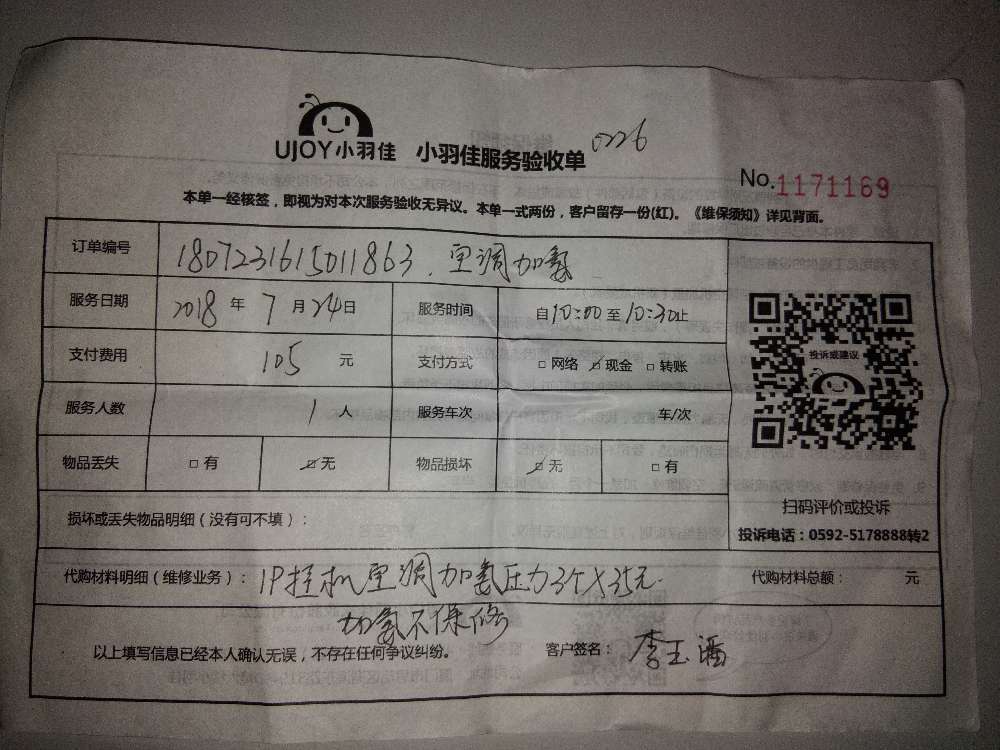 UJOY小羽佳 小羽佳服务验收单 0226
No.1171169
本单一经核签，即视为对本次服务验收无异议。本单一式两份，客户留存一份(红)。《维保须知》详见背面。
订单编号 1807231615011863.空调加氨
服务日期 2018 年 7 月 24 日 服务时间 自10:00至10:30止
支付费用 105 元 支付方式 □ 网络 ☑ 现金 □ 转账
服务人数 1 人 服务车次 车/次
物品丢失 □ 有 ☑ 无 物品损坏 ☑ 无 □ 有
投诉或建议
扫码评价或投诉
投诉电话：0592-5178888转2
损坏或丢失物品明细（没有可不填）：
代购材料明细（维修业务）： 1P挂机空调加氨压力3个X35元. 代购材料总额： 元
加氨不保修
以上填写信息已经本人确认无误，不存在任何争议纠纷。 客户签名： 李玉